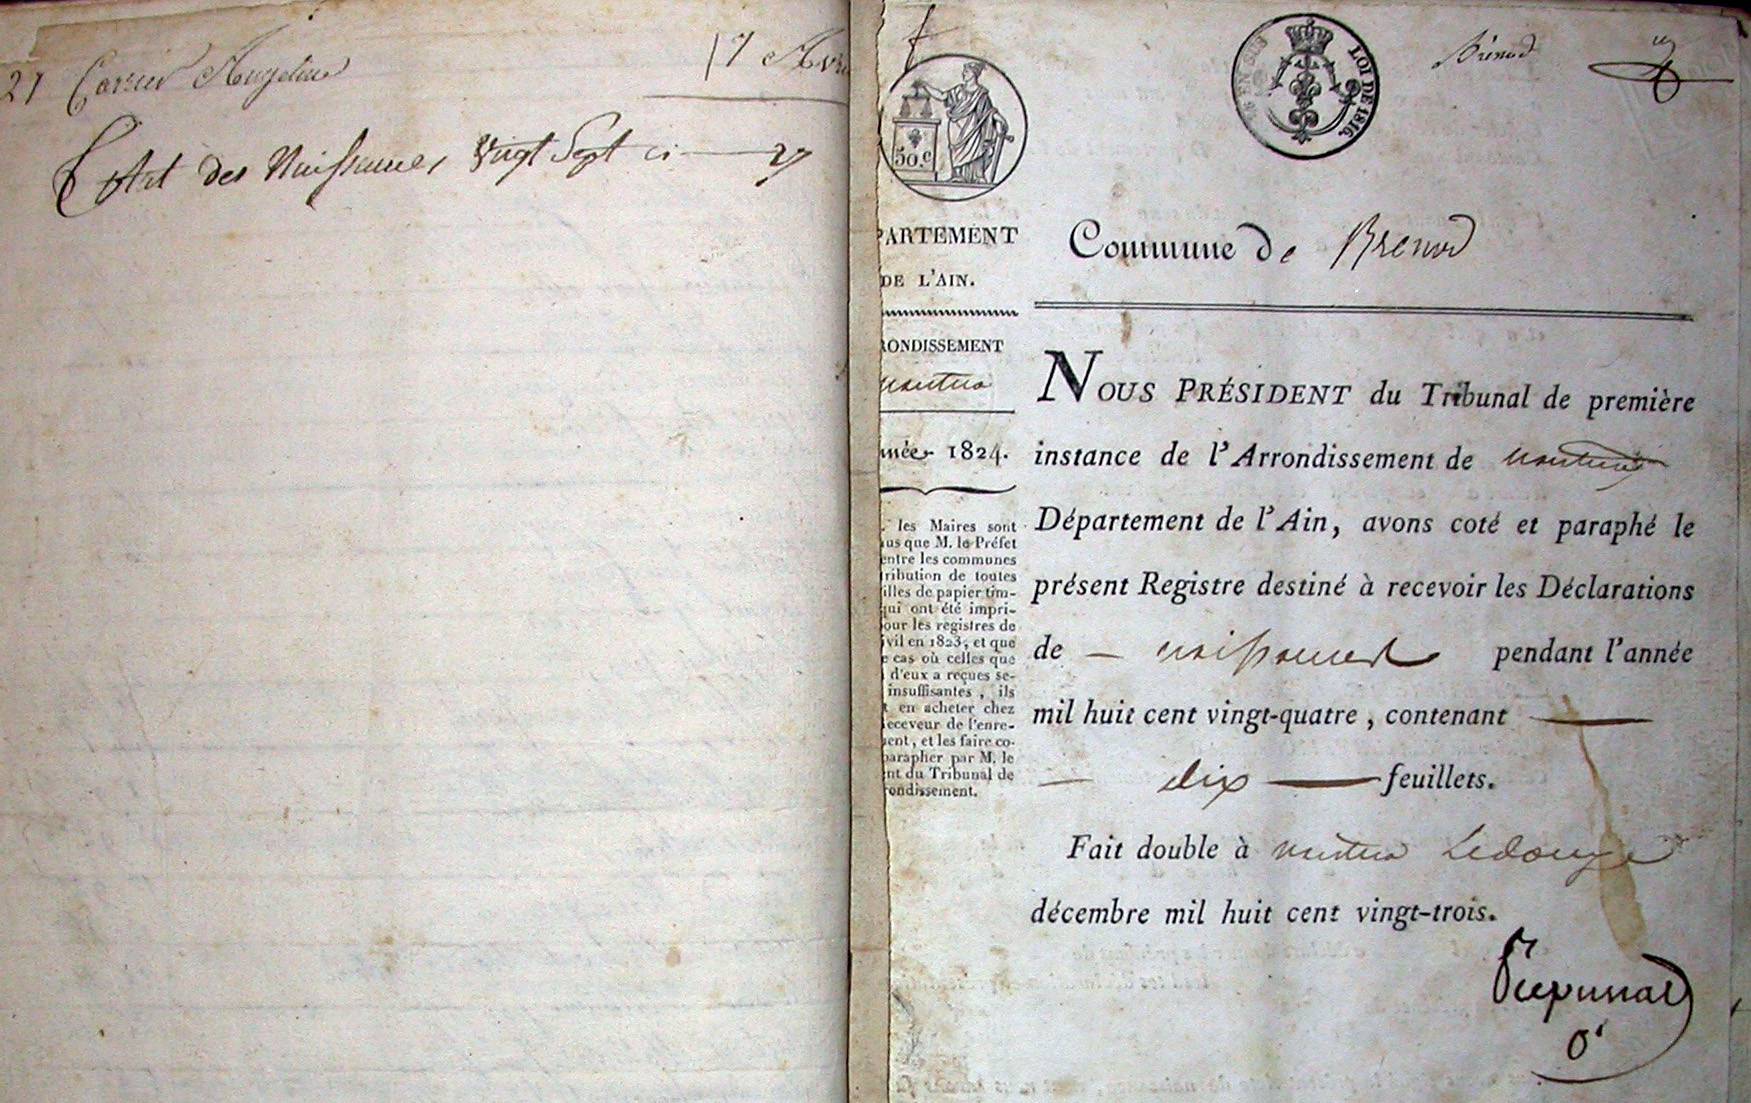 27 Carrier Angeline 17 Avri
Etat des Naissances Vingt Sept ci 27
50.c
EN SUS
LOI DE 1816.
Brénod
PARTEMENT
DE L'AIN.
RONDISSEMENT
nantua
née 1824.
les Maires sont
us que M. le Préfet
entre les communes
ribution de toutes
illes de papier tim-
qui ont été impri-
our les registres de
ivil en 1823, et que
e cas où celles que
d'eux a reçues se-
insuffisantes, ils
t en acheter chez
eceveur de l'enre-
ent, et les faire co-
parapher par M. le
nt du Tribunal de
rondissement.
Commune de Brenod
NOUS PRÉSIDENT du Tribunal de première
instance de l'Arrondissement de nantua
Département de l'Ain, avons coté et paraphé le
présent Registre destiné à recevoir les Déclarations
de — naissances pendant l'année
mil huit cent vingt-quatre, contenant —
— dix — feuillets.
Fait double à nantua Ledouze
décembre mil huit cent vingt-trois.